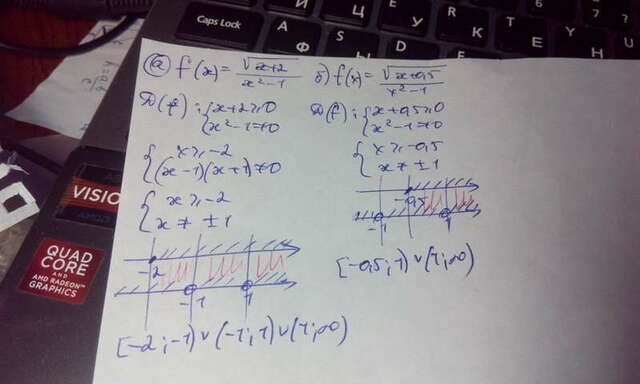 Caps Lock
Ф
Ц
У
А
Ы
S
D
6
7
VISION
AMD
QUAD
CORE
AND
AMD RADEON™
GRAPHICS
а) f(x) = √(x+2) / (x²-1)
D(f): { x+2 ≥ 0
x²-1 ≠ 0
{ x ≥ -2
(x-1)(x+1) ≠ 0
{ x ≥ -2
x ≠ ±1
-2
-1 1
[-2; -1) ∪ (-1; 1) ∪ (1; ∞)
б) f(x) = √(x+0,5) / (x²-1)
D(f): { x+0,5 ≥ 0
x²-1 ≠ 0
{ x ≥ -0,5
x ≠ ±1
-0,5
-1 1
[-0,5; 1) ∪ (1; ∞)